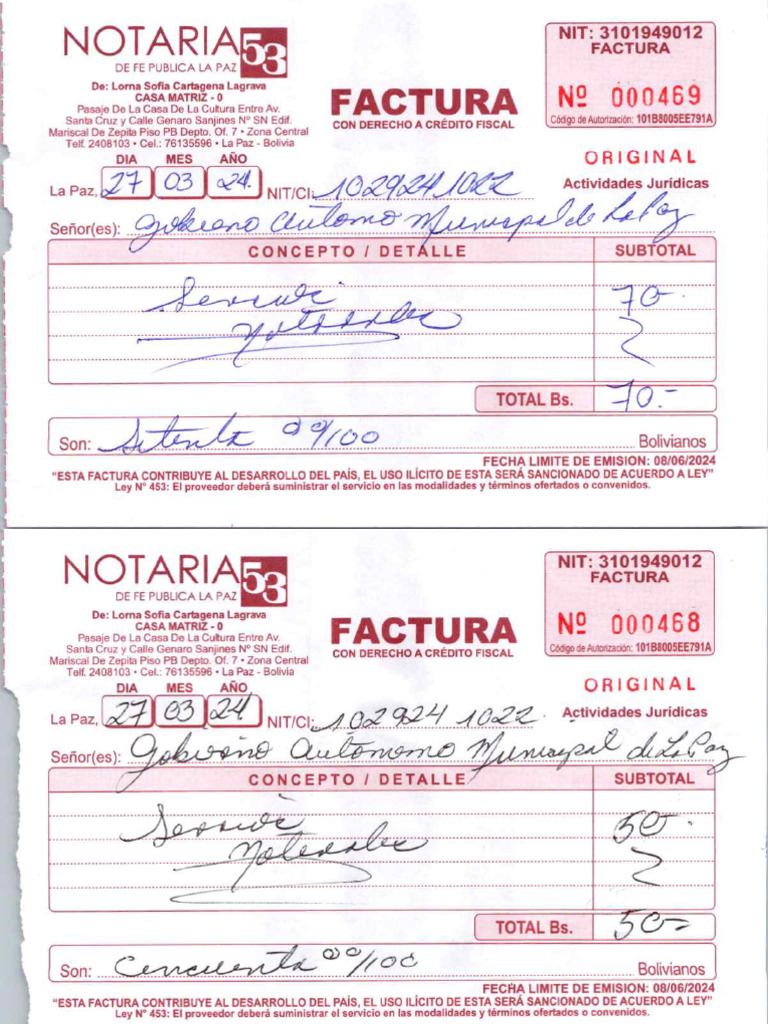 NOTARIA 53
DE FE PUBLICA LA PAZ
De: Lorna Sofia Cartagena Lagrava
CASA MATRIZ - 0
Pasaje De La Casa De La Cultura Entre Av.
Santa Cruz y Calle Genaro Sanjines Nº SN Edif.
Mariscal De Zepita Piso PB Depto. Of. 7 • Zona Central
Telf. 2408103 • Cel.: 76135596 • La Paz - Bolivia
FACTURA
CON DERECHO A CRÉDITO FISCAL
NIT: 3101949012
FACTURA
Nº 000469
Código de Autorización: 101B8005EE791A
ORIGINAL
Actividades Jurídicas
DIA MES AÑO
La Paz, 27 03 24 NIT/CI: 1029241022
Señor(es): Gobierno Autonomo Municipal de La Paz
CONCEPTO / DETALLE SUBTOTAL
Servicio 70.-
Notariales
TOTAL Bs. 70.-
Son: Setenta 00/100 Bolivianos
FECHA LIMITE DE EMISION: 08/06/2024
“ESTA FACTURA CONTRIBUYE AL DESARROLLO DEL PAÍS, EL USO ILÍCITO DE ESTA SERÁ SANCIONADO DE ACUERDO A LEY”
Ley Nº 453: El proveedor deberá suministrar el servicio en las modalidades y términos ofertados o convenidos.
NOTARIA 53
DE FE PUBLICA LA PAZ
De: Lorna Sofia Cartagena Lagrava
CASA MATRIZ - 0
Pasaje De La Casa De La Cultura Entre Av.
Santa Cruz y Calle Genaro Sanjines Nº SN Edif.
Mariscal De Zepita Piso PB Depto. Of. 7 • Zona Central
Telf. 2408103 • Cel.: 76135596 • La Paz - Bolivia
FACTURA
CON DERECHO A CRÉDITO FISCAL
NIT: 3101949012
FACTURA
Nº 000468
Código de Autorización: 101B8005EE791A
ORIGINAL
Actividades Jurídicas
DIA MES AÑO
La Paz, 27 03 24 NIT/CI: 1029241022
Señor(es): Gobierno Autónomo Municipal de La Paz
CONCEPTO / DETALLE SUBTOTAL
Servicio 50.-
Notariales
TOTAL Bs. 50.-
Son: Cincuenta 00/100 Bolivianos
FECHA LIMITE DE EMISION: 08/06/2024
“ESTA FACTURA CONTRIBUYE AL DESARROLLO DEL PAÍS, EL USO ILÍCITO DE ESTA SERÁ SANCIONADO DE ACUERDO A LEY”
Ley Nº 453: El proveedor deberá suministrar el servicio en las modalidades y términos ofertados o convenidos.